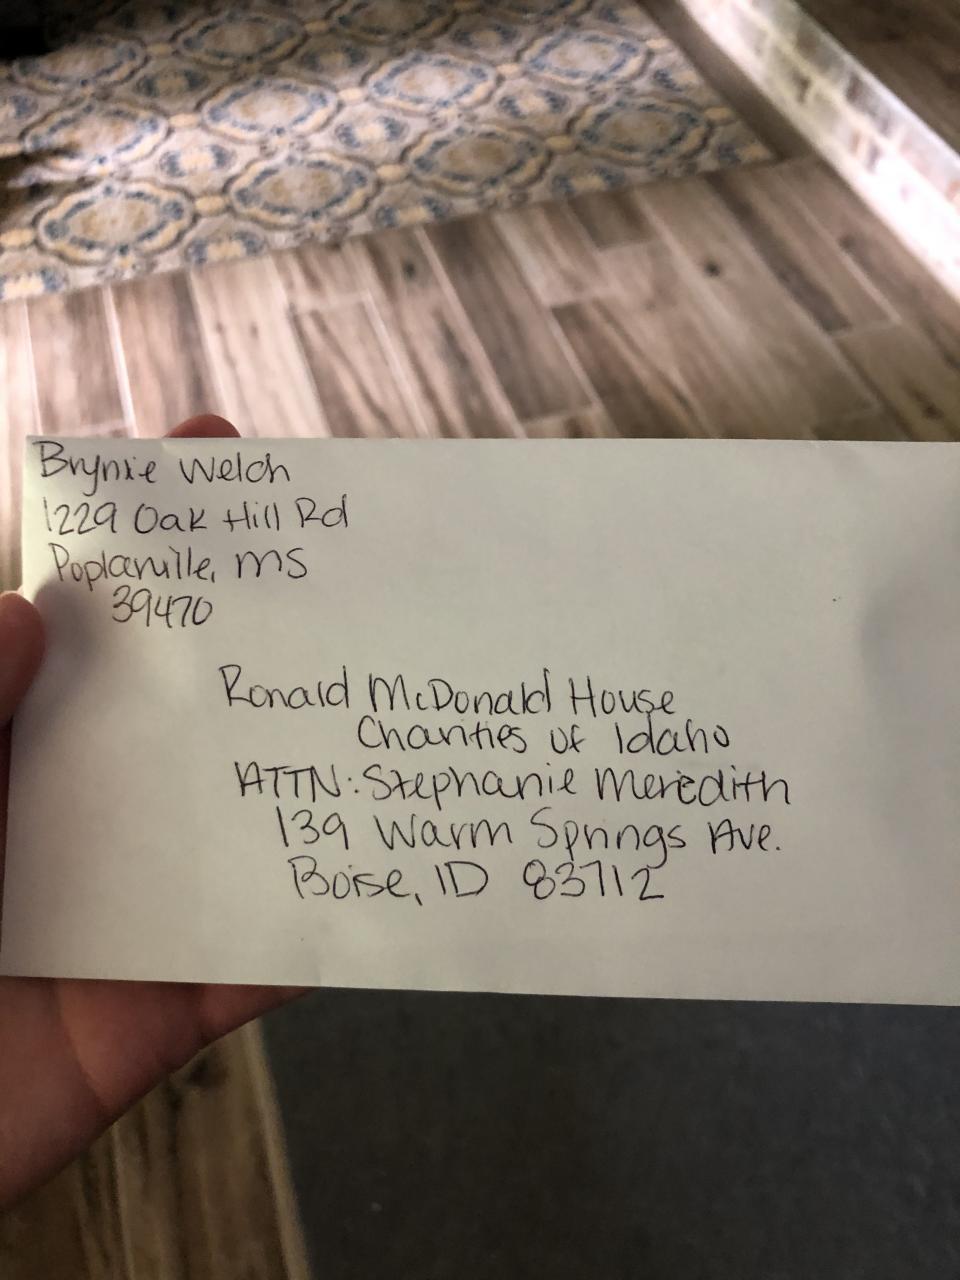 Brynie Welch
1229 Oak Hill Rd
Poplarville, MS
39470
Ronald McDonald House
Charities of Idaho
ATTN: Stephanie Meredith
139 Warm Springs Ave.
Boise, ID 83712